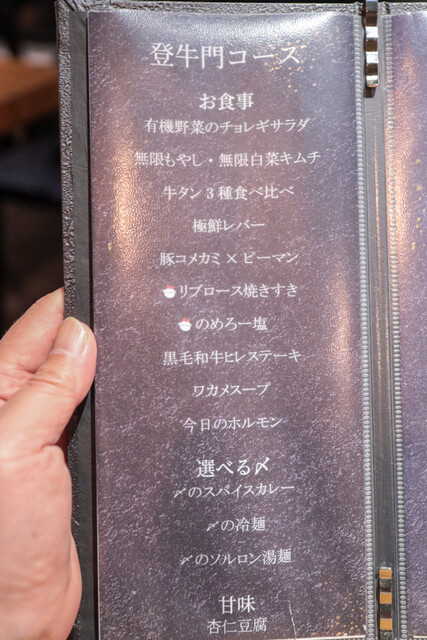 登牛門コース
お食事
有機野菜のチョレギサラダ
無限もやし・無限白菜キムチ
牛タン3種食べ比べ
極鮮レバー
豚コメカミ×ピーマン
リブロース焼きすき
のめろー塩
黒毛和牛ヒレステーキ
ワカメスープ
今日のホルモン
選べる〆
〆のスパイスカレー
〆の冷麺
〆のソルロン湯麺
甘味
杏仁豆腐